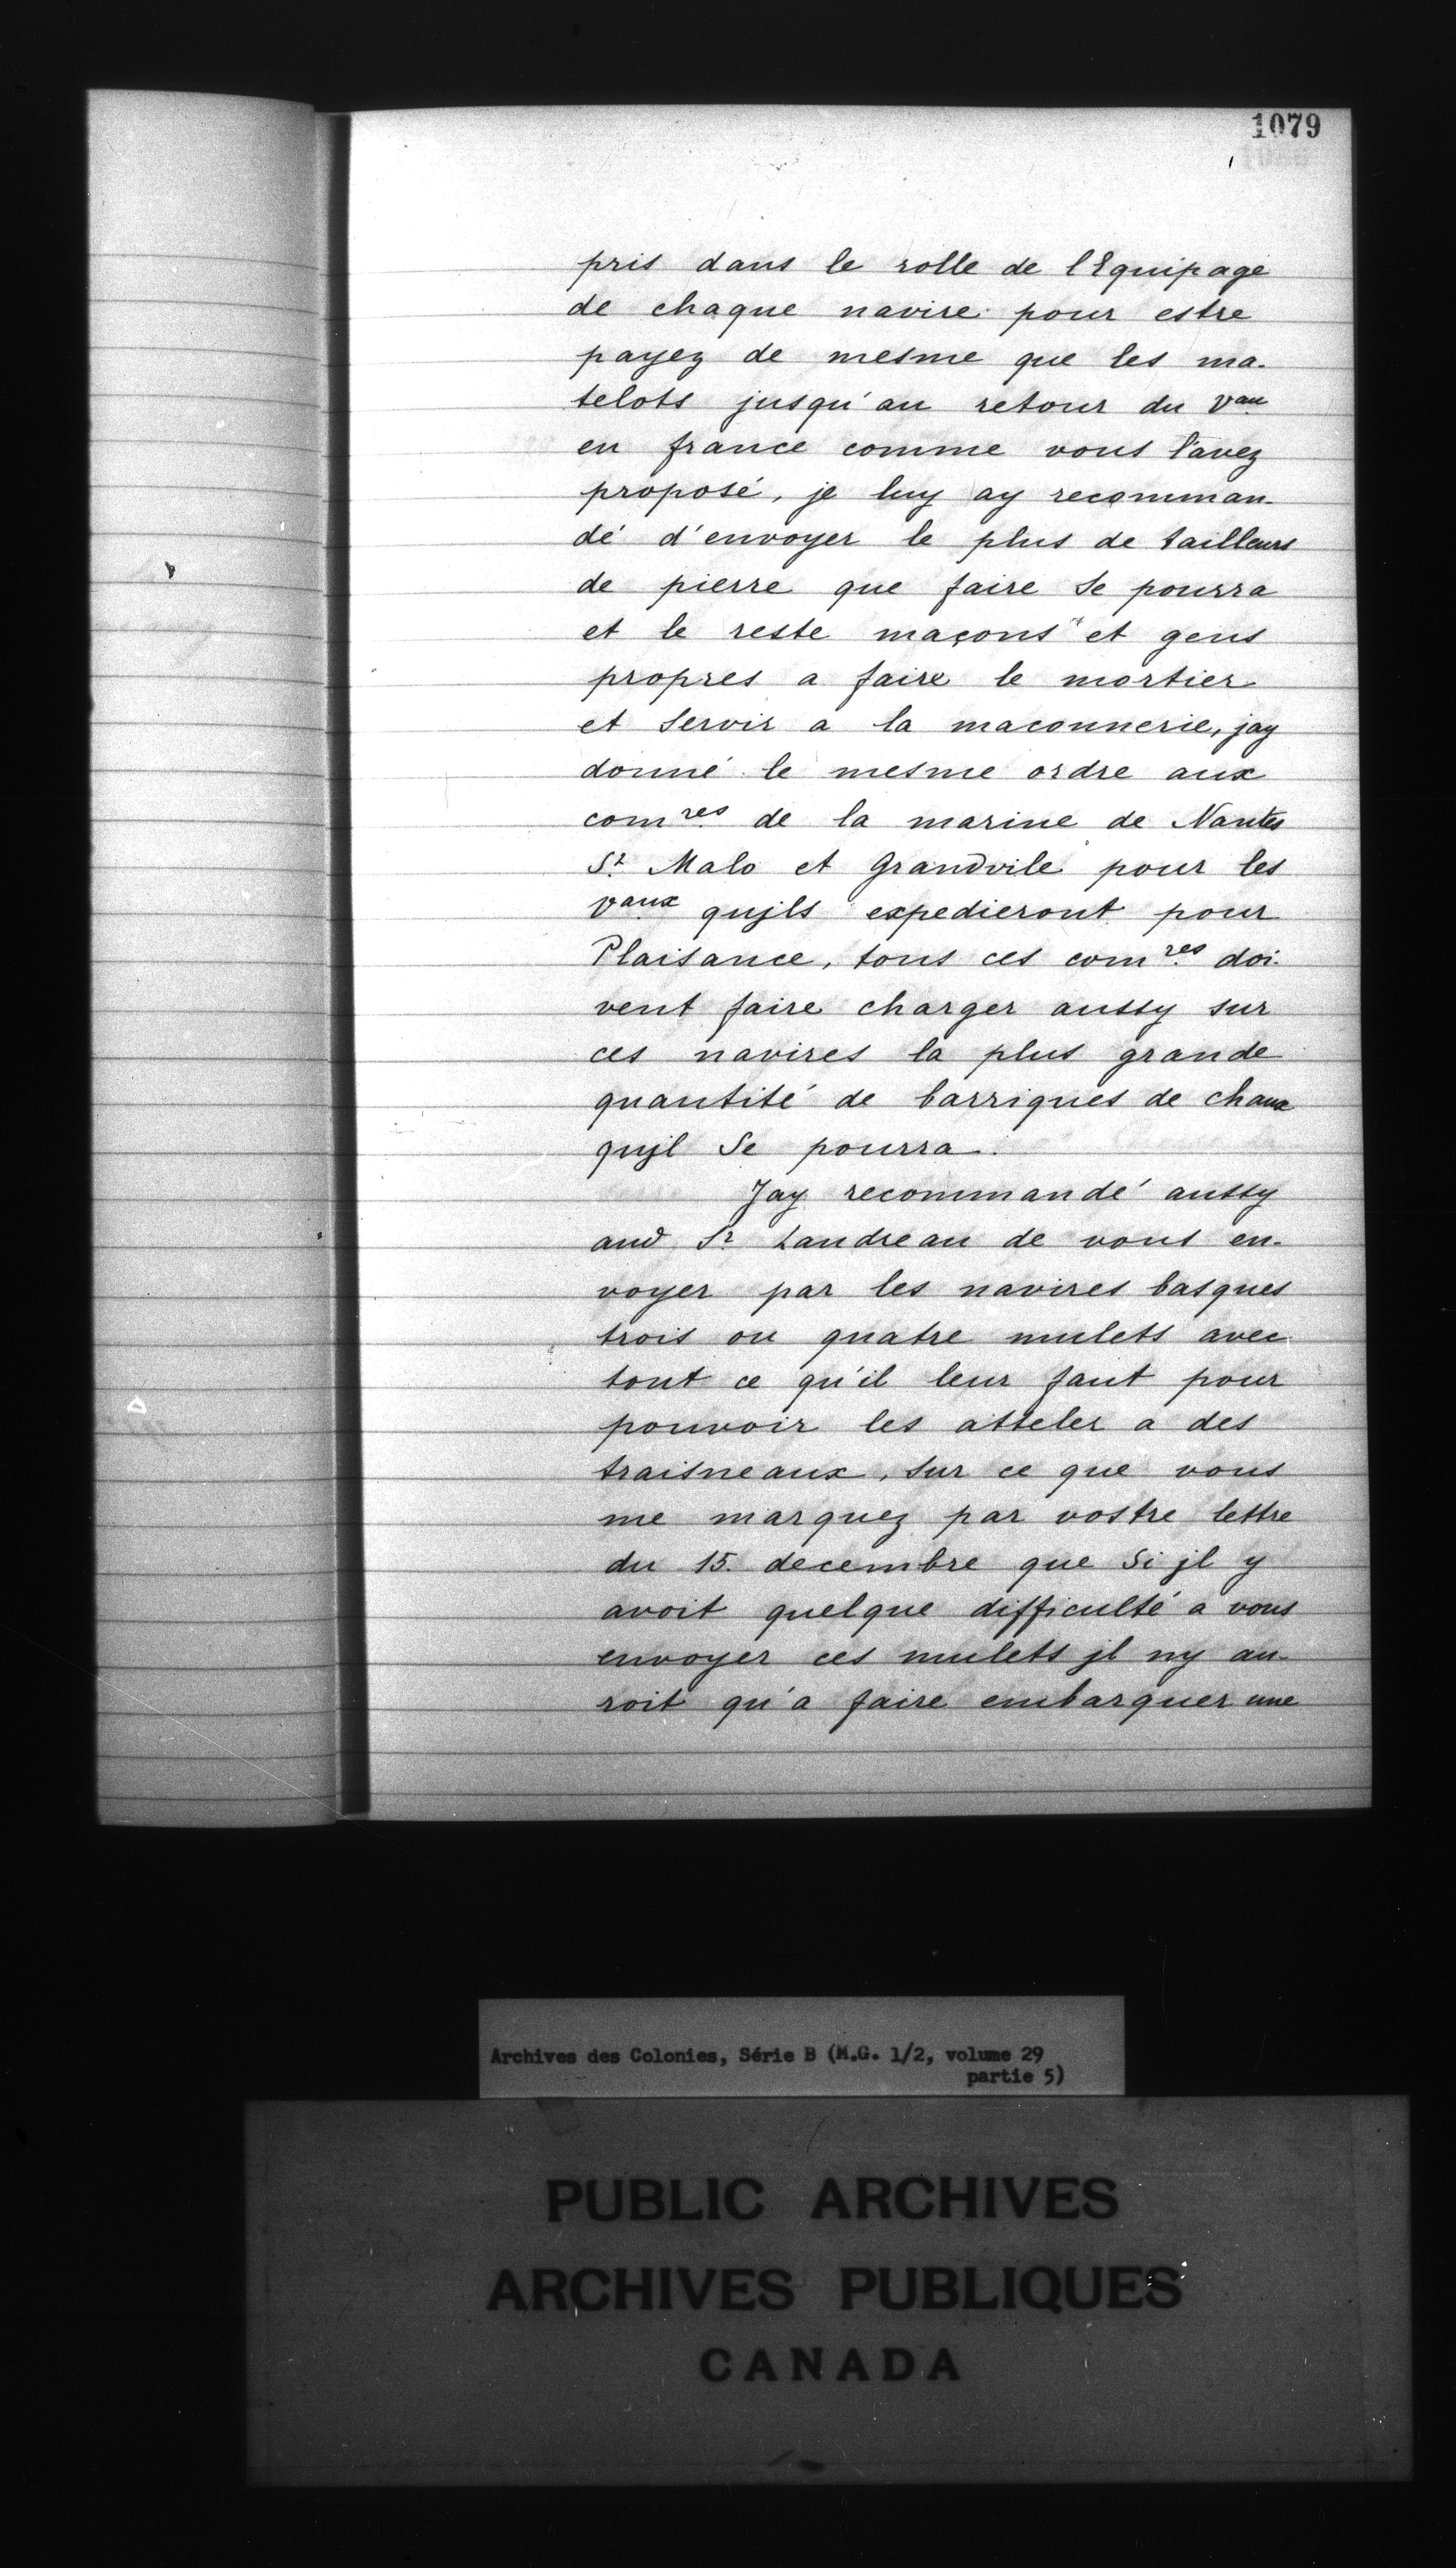 1079
pris dans le rolle de l'Equipage
de chaque navire pour estre
payez de mesme que les ma-
telots jusqu'au retour du Vau
en france comme vous l'avez
proposé, je luy ay recomman-
dé d'envoyer le plus de tailleurs
de pierre que faire se pourra
et le reste maçons et gens
propres a faire le mortier
et servir a la maconnerie, jay
donné le mesme ordre aux
comres de la marine de Nantes
St Malo et Grandvile pour les
Vaux qujls expedieront pour
Plaisance, tous ces comres doi-
vent faire charger aussy sur
ces navires la plus grande
quantité de barriques de chaux
qujl se pourra.
Jay recommandé aussy
aud Sr Landreau de vous en-
voyer par les navires basques
trois ou quatre mulets avec
tout ce qu'il leur faut pour
pouvoir les atteler a des
traisneaux, sur ce que vous
me marquez par vostre lettre
du 15. decembre que si jl y
avoit quelque difficulté a vous
envoyer ces mulets jl ny au-
roit qu'a faire embarquer une
Archives des Colonies, Série B (M.G. 1/2, volume 29
partie 5)
PUBLIC ARCHIVES
ARCHIVES PUBLIQUES
CANADA